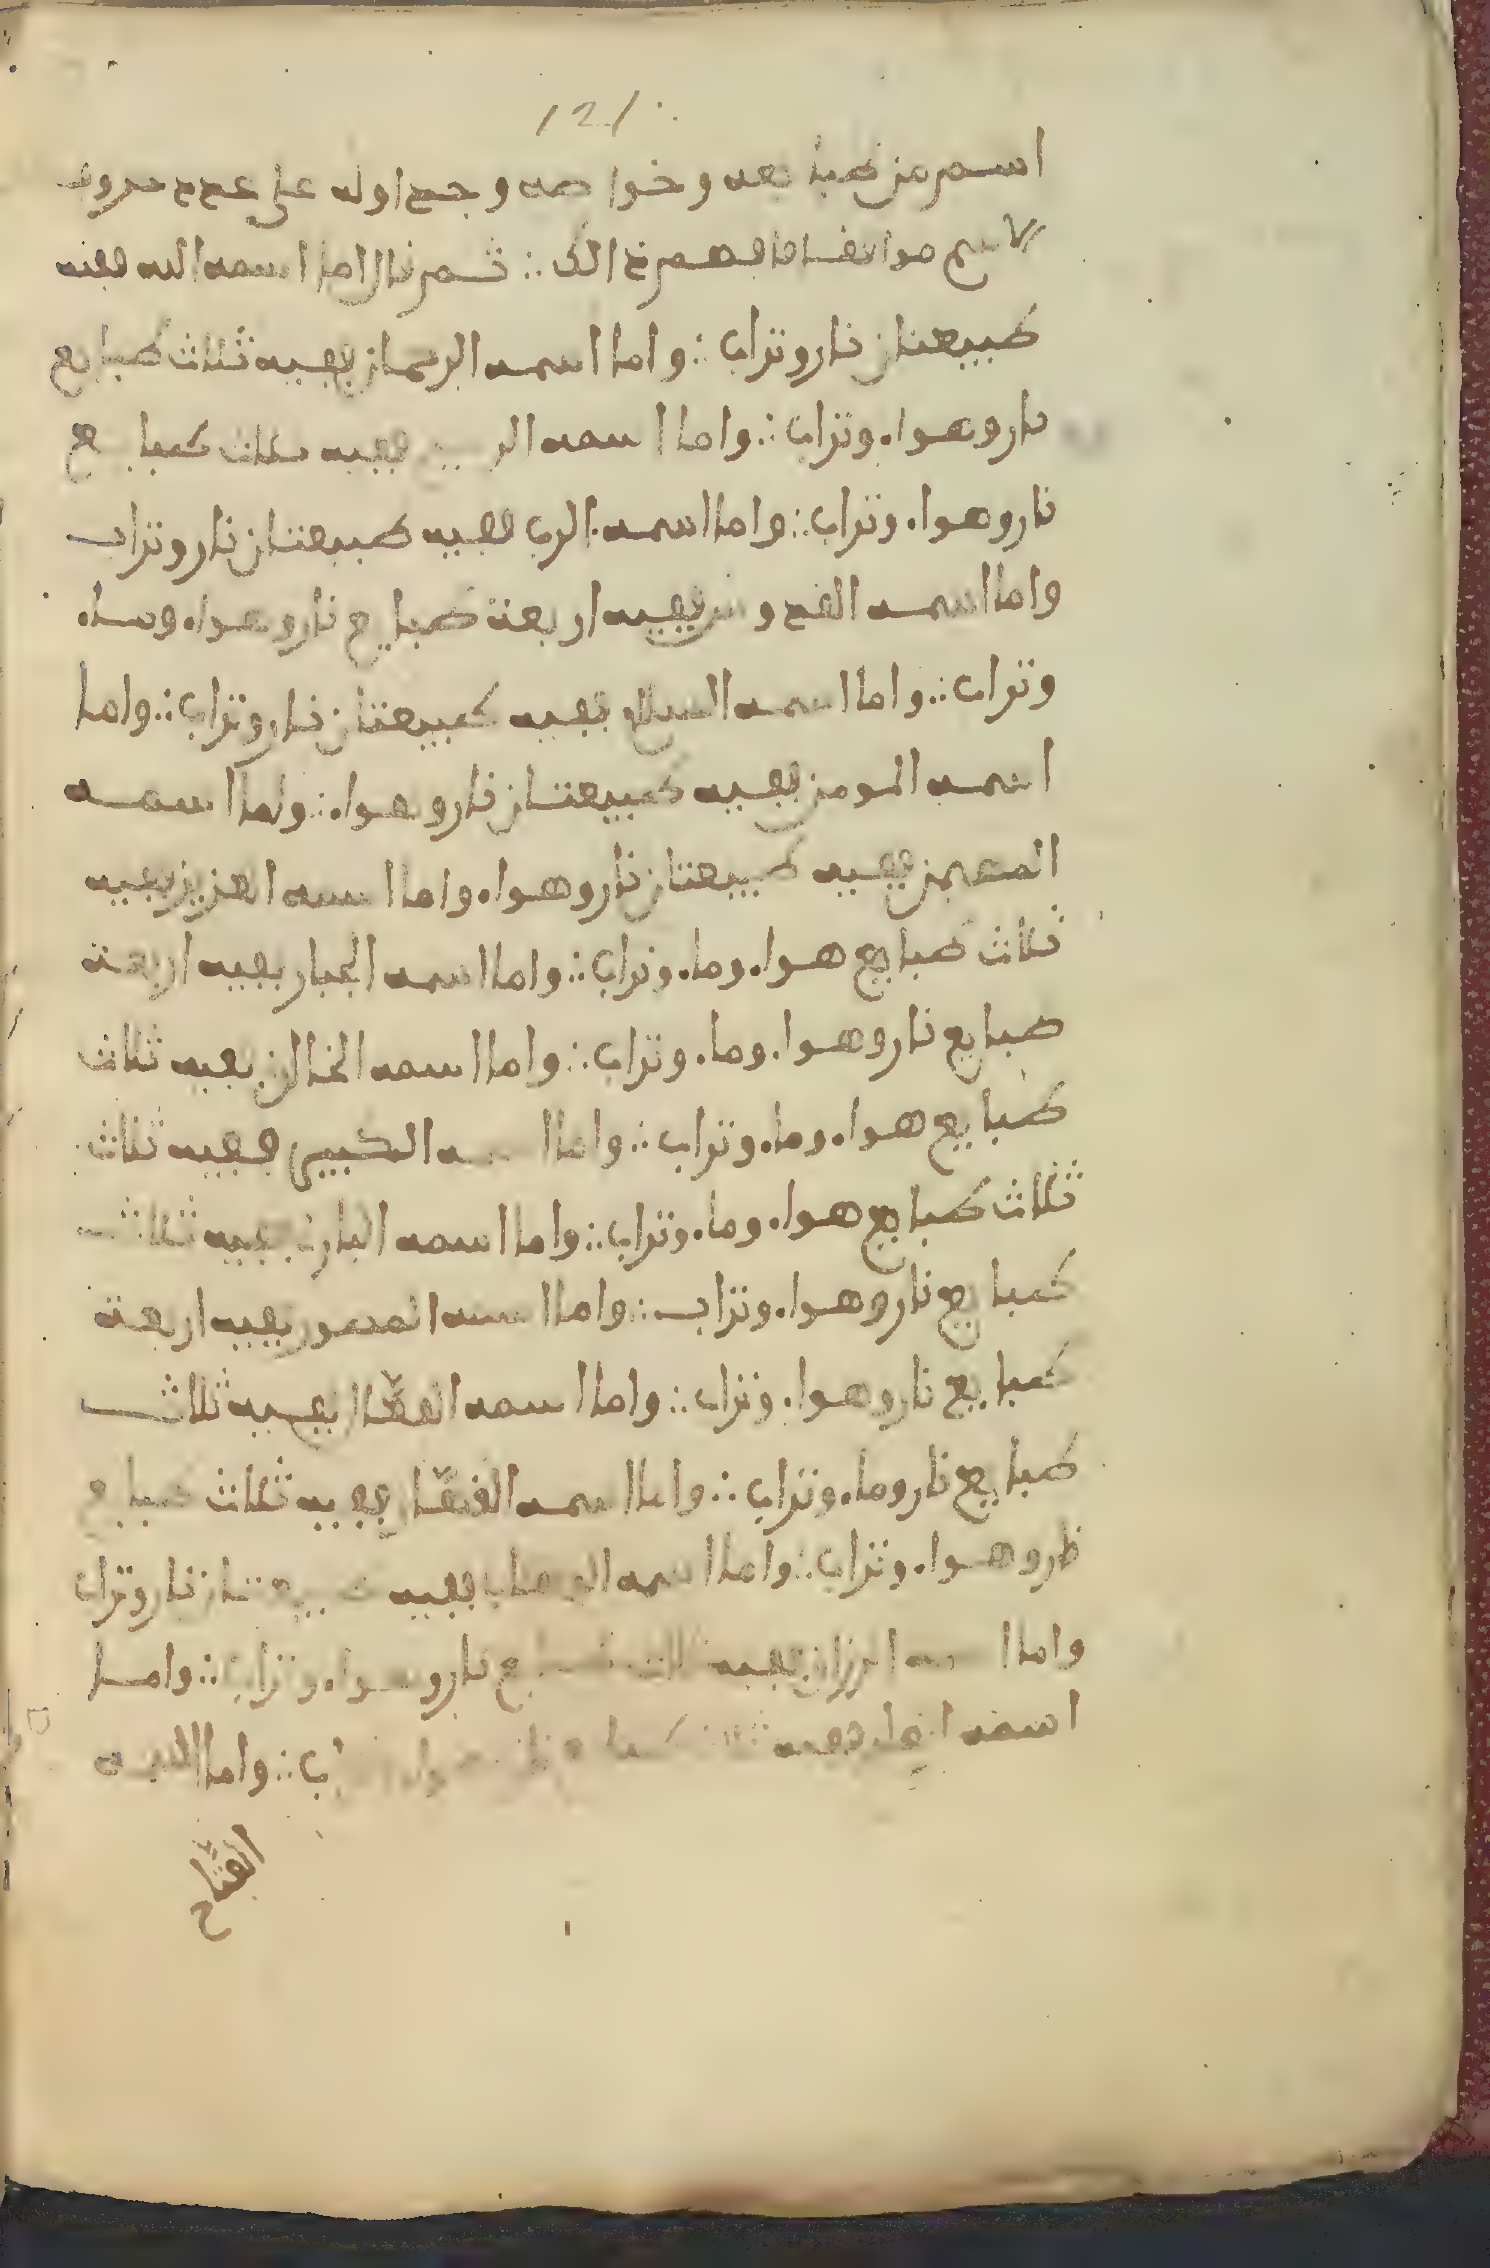 121
اسم من طبايعه وخواصه وجداوله على عدد حروف
الاسم موافقا فافهم ذالك ؞ ثم قال اما اسمه الله ففيه
طبيعتان نار وتراب ؞ واما اسمه الرحمان ففيه ثلاث طبايع
نار وهواء وتراب ؞ واما اسمه ففيه ثلاث طبايع
نار وهواء وتراب ؞ واما اسمه الرب ففيه طبيعتان نار وتراب
واما اسمه القدوس ففيه اربعة طبايع نار وهواء وماء
وتراب ؞ واما اسمه السلام ففيه طبيعتان نار وتراب ؞ واما
اسمه المومن ففيه طبيعتان نار وهواء ؞ واما اسمه
المهيمن ففيه طبيعتان نار وهواء واما اسمه العزيز ففيه
ثلاث طبايع هواء وماء وتراب ؞ واما اسمه الجبار ففيه اربعة
طبايع نار وهواء وماء وتراب ؞ واما اسمه الخالق ففيه ثلاث
طبايع هواء وماء وتراب ؞ واما اسمه الكبير ففيه ثلاث
ثلاث طبايع هواء وماء وتراب ؞ واما اسمه البارئ ففيه ثلاث
طبايع نار وهواء وتراب ؞ واما اسمه المصور ففيه اربعة
طبايع نار وهواء وتراب ؞ واما اسمه ففيه ثلاث
طبايع نار وماء وتراب ؞ واما اسمه القهّار ففيه ثلاث طبايع
نار وهواء وتراب ؞ واما اسمه الوهاب ففيه طبيعتان نار وتراب
واما اسمه الرزاق ففيه ثلاث طبايع نار وهواء وتراب ؞ واما
اسمه ففيه ثلاث طبايع ؞ واما اسمه
الفتّاح